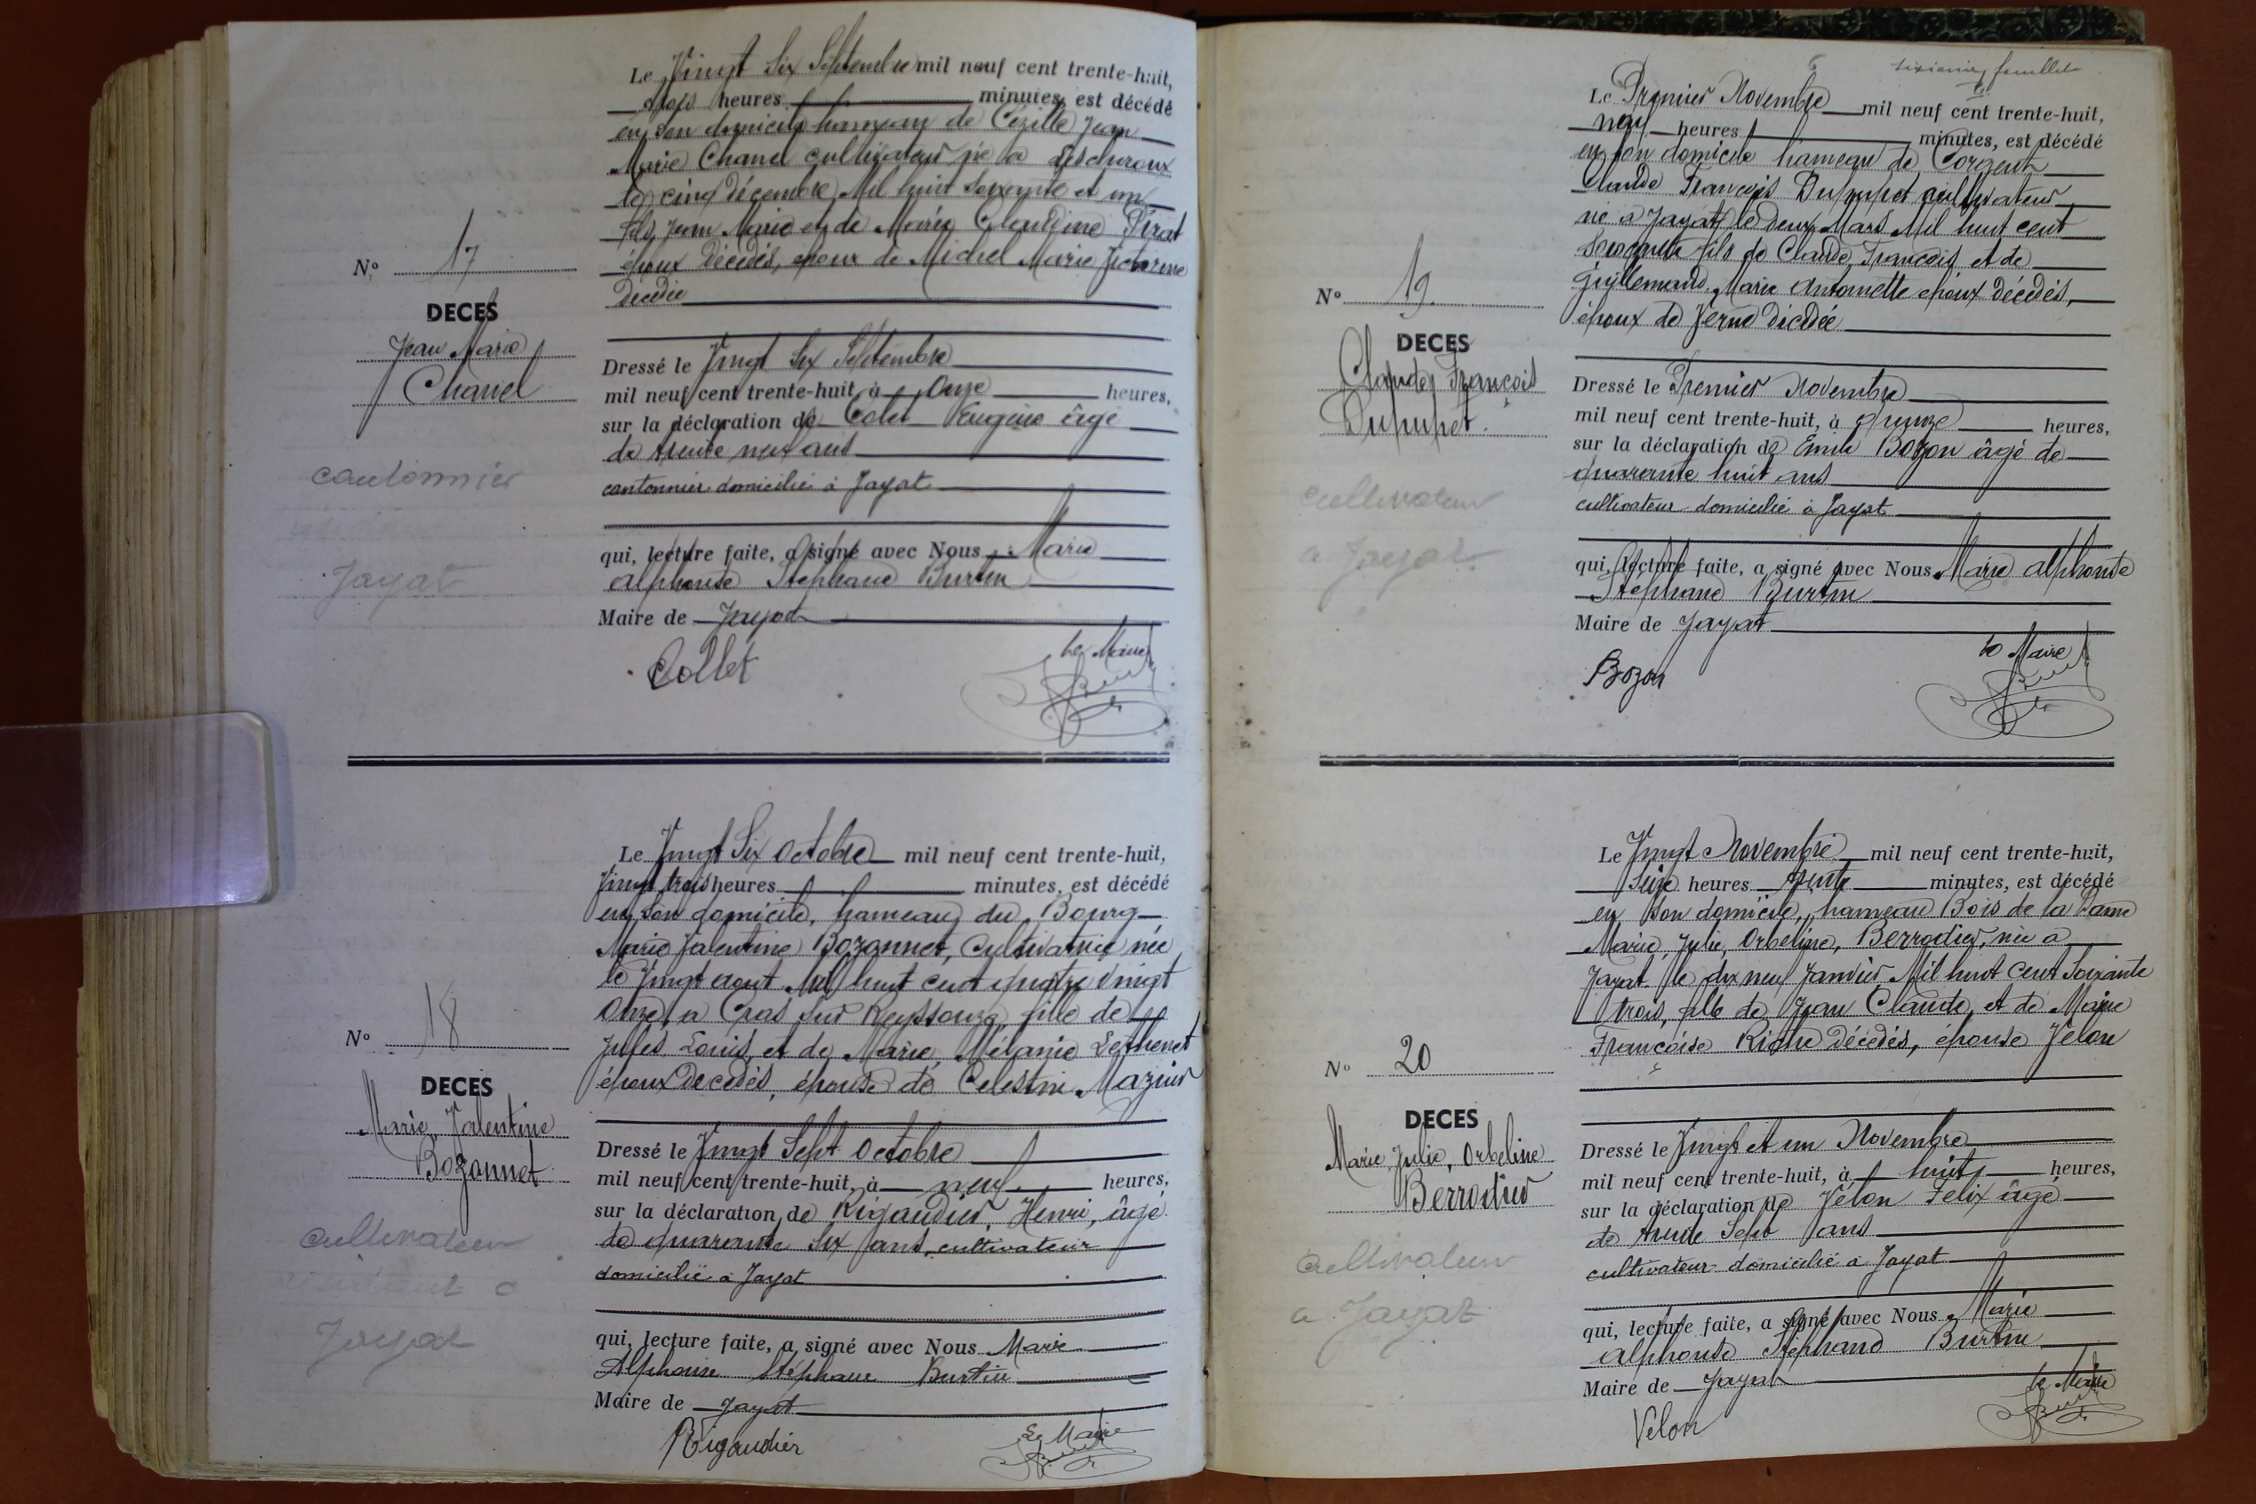 Le Vingt Six Septembre mil neuf cent trente-huit,
trois heures minutes, est décédé
en son domicile hameau de Cézille Jean
Marie Chanel cultivateur né à Lescheroux
le cinq décembre Mil huit soixante et un
fils Jean Marie et de Marie Claudine Pirat
époux décédés, époux de Michel Marie Victorine
décédée
N° 17
DECES
Jean Marie
Chanel
cantonnier
Jayat
Dressé le Vingt Six Septembre
mil neuf cent trente-huit à Onze heures,
sur la déclaration de Colet Eugène âgé
de trente neuf ans
cantonnier domicilié à Jayat
qui, lecture faite, a signé avec Nous Marie
Alphonse Stéphane Burtin
Maire de Jayat
Collet
Le Maire
Le Vingt Six Octobre mil neuf cent trente-huit,
Vingt trois heures minutes, est décédé
en son domicile, hameau du Bourg
Marie Valentine Bozonnet, Cultivatrice née
le Vingt aout Mil huit cent quatre vingt
Onze a Cras sur Reyssouze, fille de
Jules Louis et de Marie Mélanie Bethenet
époux Décédés, épouse de Celestin Mazuir
N° 18
DECES
Marie Valentine
Bozonnet
cultivateur
a
Jayat
Dressé le Vingt Sept Octobre
mil neuf cent trente-huit, à neuf heures,
sur la déclaration de Rigaudier, Henri, âgé
de quarante six ans, cultivateur
domicilié à Jayat
qui, lecture faite, a signé avec Nous Marie
Alphonse Stéphane Burtin
Maire de Jayat
Rigaudier
Le Maire
6
sixième feuillet
Le Premier Novembre mil neuf cent trente-huit,
neuf heures minutes, est décédé
en son domicile hameau de Corgent
Claude François Dupupet cultivateur
né à Jayat le deux Mars Mil huit cent
Soixante fils de Claude François et de
Guillemaud Marie Antoinette époux décédés,
époux de Verne décédée
N° 19
DECES
Claude, François
Dupupet
cultivateur
a Jayat
Dressé le Premier Novembre
mil neuf cent trente-huit, à Quinze heures,
sur la déclaration de Emile Bozon âgé de
quarante huit ans
cultivateur domicilié à Jayat
qui, lecture faite, a signé avec Nous Marie Alphonse
Stéphane Burtin
Maire de Jayat
Bozon
Le Maire
Le Vingt Novembre mil neuf cent trente-huit,
Seize heures trente minutes, est décédé
en son domicile, hameau Bois de la Dame
Marie, Julie, Orbeline, Berrodier, née a
Jayat le dix neuf Janvier Mil huit cent Soixante
trois, fille de Jean Claude et de Marie
Françoise Riche décédés, épouse Velon
N° 20
DECES
Marie, Julie, Orbeline
Berrodier
cultivateur
a Jayat
Dressé le Vingt et un Novembre
mil neuf cent trente-huit, à huit heures,
sur la déclaration de Vélon Félix âgé
de trente Sept ans
cultivateur domicilié à Jayat
qui, lecture faite, a signé avec Nous Marie
Alphonse Stéphane Burtin
Maire de Jayat
Velon
Le Maire